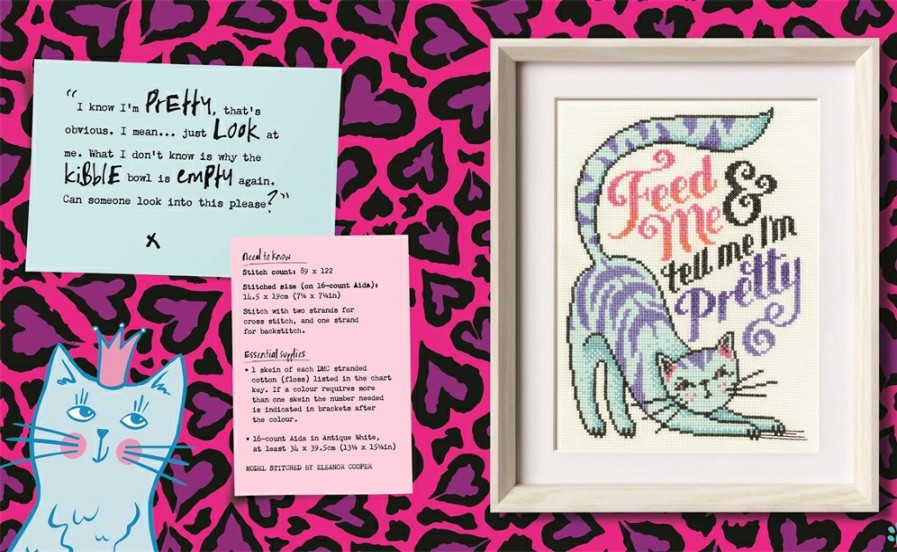 “I know I'm PrEtty, that's
obvious. I mean... just LOOK at
me. What I don't know is why the
kiBblE bowl is emPty again.
Can someone look into this please?”
x
Need to know
Stitch count: 89 x 122
Stitched size (on 16-count Aida):
14.5 x 19cm (7¼ x 7¼in)
Stitch with two strands for
cross stitch, and one strand
for backstitch.
Essential supplies
• 1 skein of each DMC stranded
cotton (floss) listed in the chart
key. If a colour requires more
than one skein the number needed
is indicated in brackets after
the colour.
• 16-count Aida in Antique White,
at least 34 x 39.5cm (13¼ x 15¼in)
MODEL STITCHED BY ELEANOR COOPER
Feed
Me &
tell me I'm
Pretty